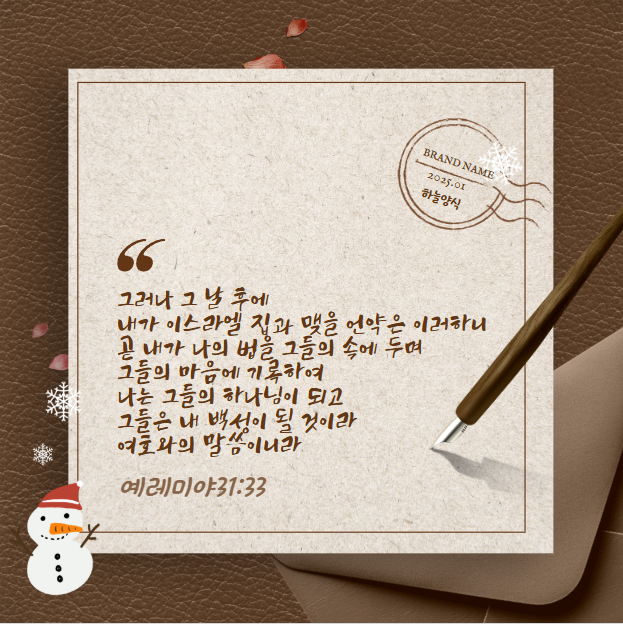 BRAND NAME
2025.01
하늘양식
“
그러나 그 날 후에
내가 이스라엘 집과 맺을 언약은 이러하니
곧 내가 나의 법을 그들의 속에 두며
그들의 마음에 기록하여
나는 그들의 하나님이 되고
그들은 내 백성이 될 것이라
여호와의 말씀이니라
예레미야31:33